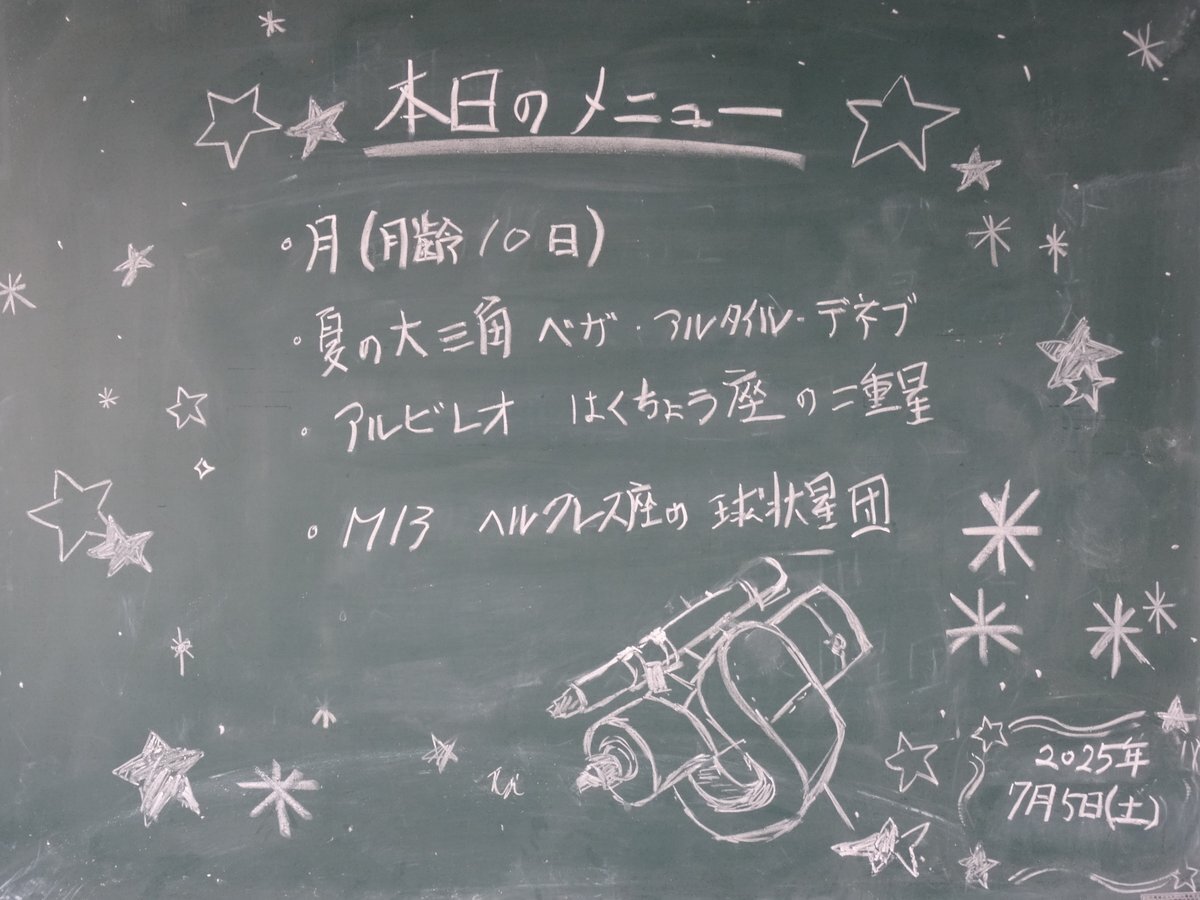 本日のメニュー
・月(月齢10日)
・夏の大三角 ベガ・アルタイル・デネブ
・アルビレオ はくちょう座の二重星
・M13 ヘルクレス座の球状星団
2025年
7月5日(土)